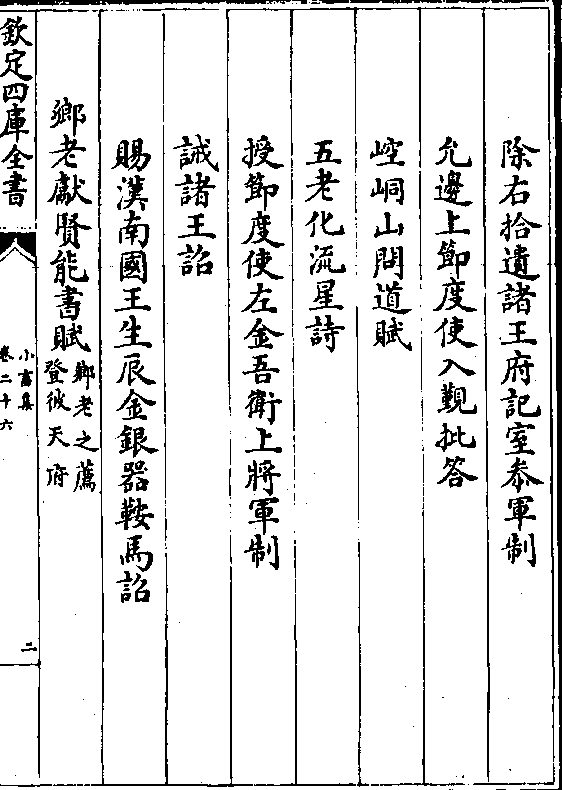 除右拾遺諸王府記室叅軍制
允邊上節度使入覲批答
崆峒山問道賦
五老化流星詩
授節度使左金吾衛上將軍制
誡諸王詔
賜漢南國王生辰金銀器鞍馬詔
鄉老獻賢能書賦鄉老之薦登彼天府
欽定四庫全書
小畜集
卷二十六
二